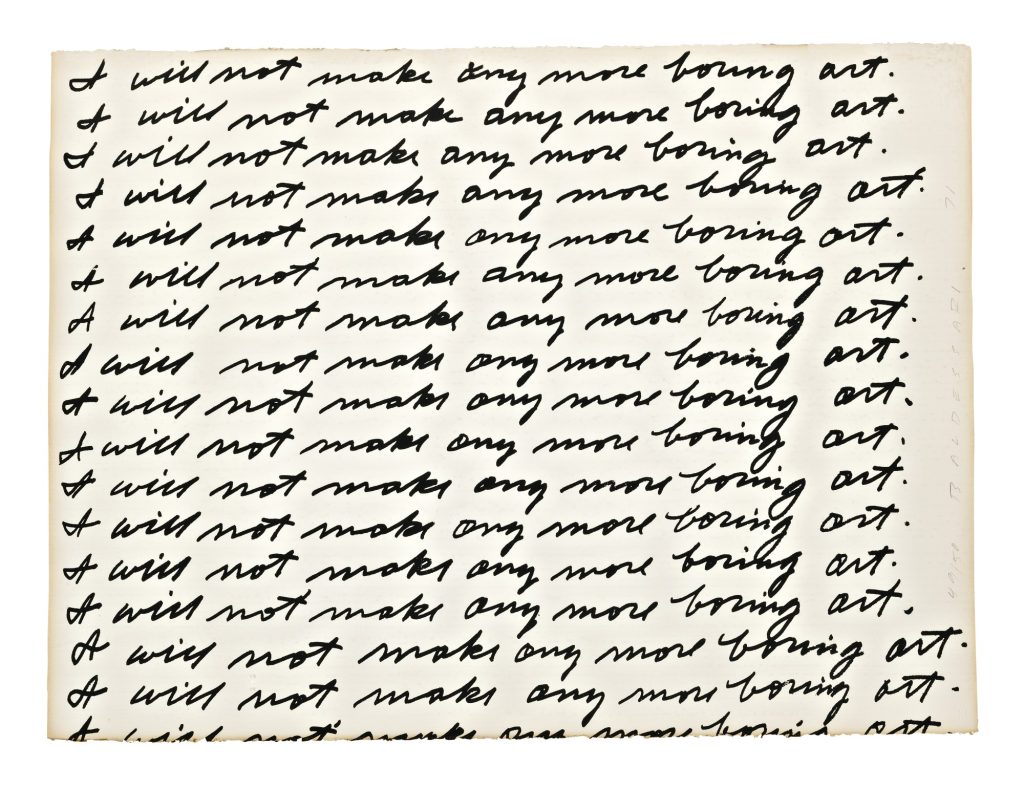 I will not make any more boring art.
I will not make any more boring art.
I will not make any more boring art.
I will not make any more boring art.
I will not make any more boring art.
I will not make any more boring art.
I will not make any more boring art.
I will not make any more boring art.
I will not make any more boring art.
I will not make any more boring art.
I will not make any more boring art.
I will not make any more boring art.
I will not make any more boring art.
I will not make any more boring art.
I will not make any more boring art.
I will not make any more boring art.
I will not make any more boring art.
49/50 BALDESSARI. 71